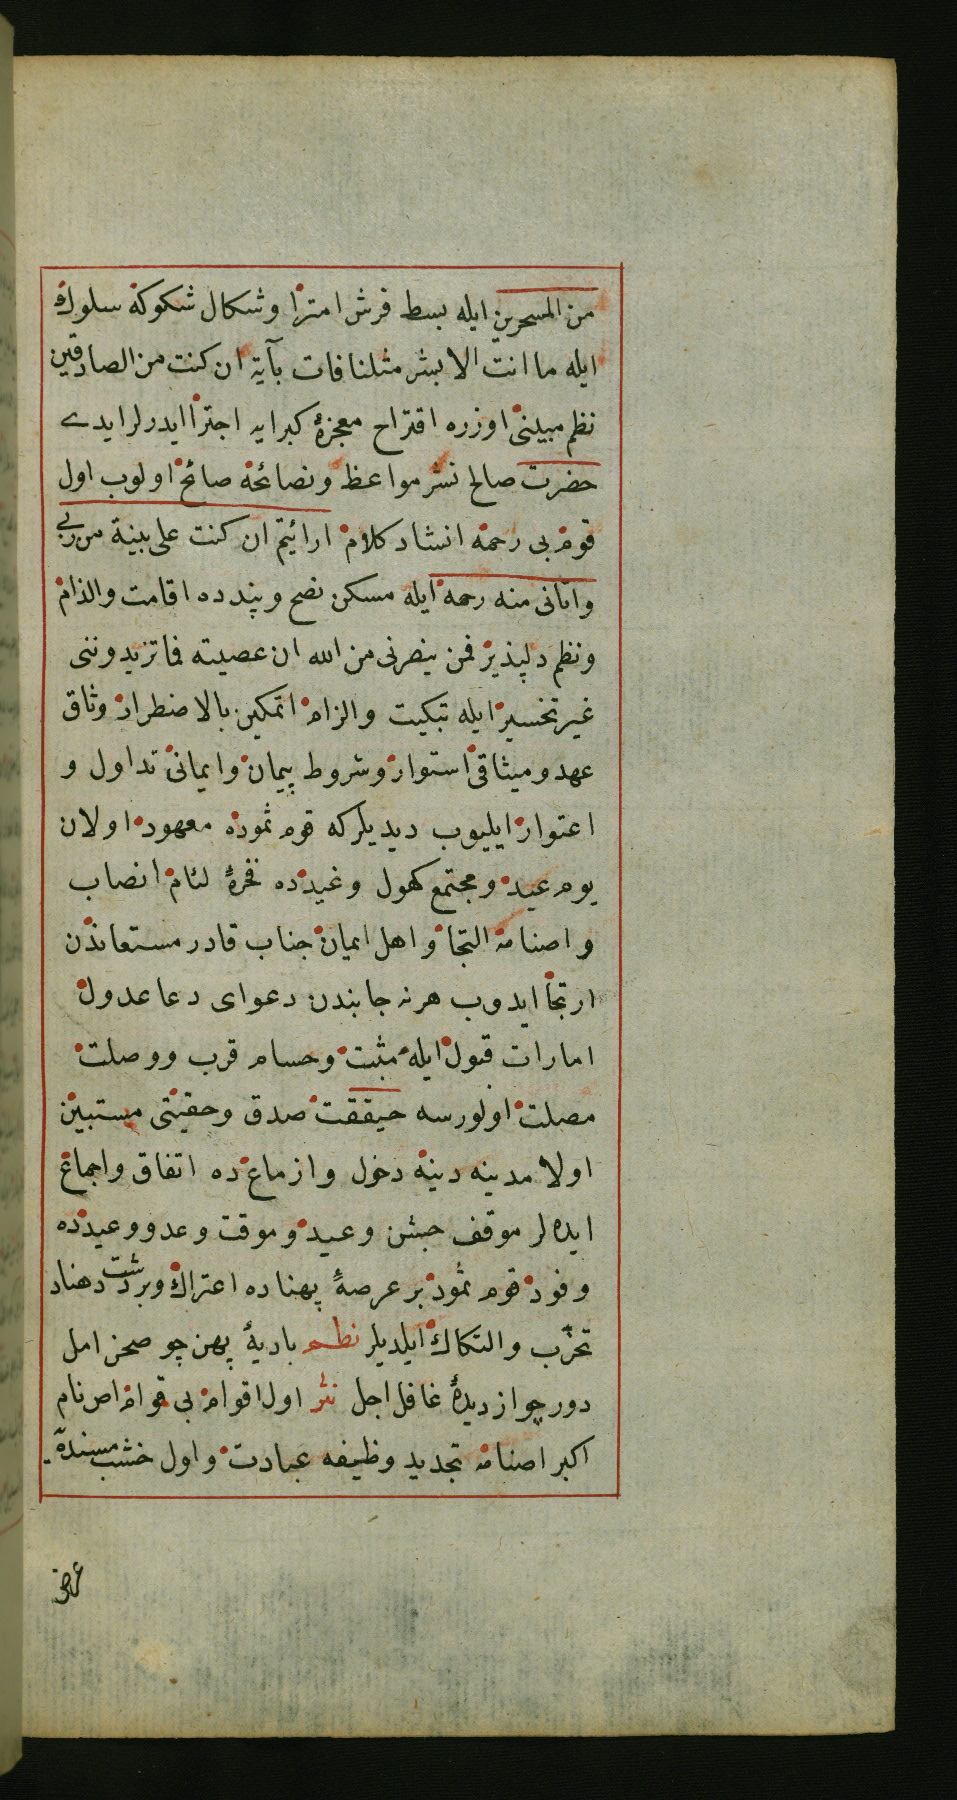 من المسحرين ايله بسط فرش امترا وشكال شكوكه سلوك
ايله ما انت الا بشر مثلنا فات بآية ان كنت من الصادقين
نظم مبينى اوزره اقتراح معجزۀ كبرايه اجترا ايدرلر ايدى
حضرت صالح نشر مواعظ ونصائحه صائح اولوب اول
قوم بى رحمه انشاد كلام ارائيتم ان كنت على بينة من ربى
واتانى منه رحمة ايله مسكن نصح وپندده اقامت والذام
ونظم دلپذير فمن ينصرنى من الله ان عصيته فما تزيدوننى
غير تخسير ايله تبكيت والزام اتمكين بالاضطرار وثاق
عهد وميثاقى استوار وشروط پيمان وايمانى تداول و
اعتوار ايليوب ديديلر كه قوم ثموده معهود اولان
يوم عيد ومجتمع كهول وغيدده فخرۀ لئام انصاب
واصنامه التجا و اهل ايمان جناب قادر مستعاندن
ارتجا ايدوب هرنه جانبدن دعواى دعا عدول
امارات قبول ايله مثبت وحسام قرب ووصلت
مصلت اولورسه حيققت صدق وحقيتى مستبين
اولا مدينه دينه دخول وازماعده اتفاق واجماع
ايده لر موقف جشن وعيد وموقت وعد ووعيدده
وفود قوم ثمود بر عرصۀ پهناده اعتراك وبر دشت دهناد
تحزب والتكاك ايلديلر نظم باديۀ پهن چو صحن امل
دور چو از ديدۀ غافل اجل نثر اول اقوام بى قوام اصنام
اكبر اصنامه تجديد وظيفه عبادت واول خشب مسنده
عرض